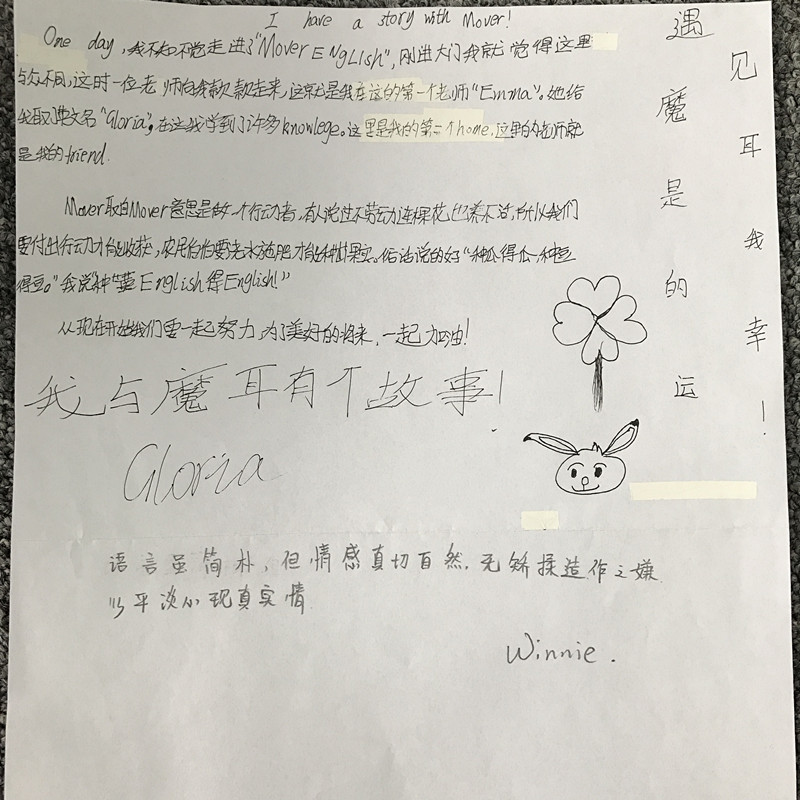 I have a story with Mover!
One day,我不知不觉走进了"Mover ENgLIsh",刚进大门我就觉得这里
与众不同,这时一位老师向我款款走来,这就是我在这的第一个老师"Emma"。她给
我取了英文名"Gloria",在这我学到了许多knowlege。这里是我的第二个home,这里的老师就
是我的friend.
Mover取自Mover意思是做一个行动者,有人说过不劳动连棵花也养不活,所以我们
要付出行动才能收获,农民伯伯要浇水施肥才能种出果实。俗话说的好"种瓜得瓜一种豆
得豆。"我说"种English得English!"
从现在开始我们要一起努力,为了美好的将来,一起加油!
我与魔耳有个故事!
Gloria
遇见魔耳是我的幸运!
语言虽简朴,但情感真切自然,无矫揉造作之嫌
以平淡中现真实情
Winnie.